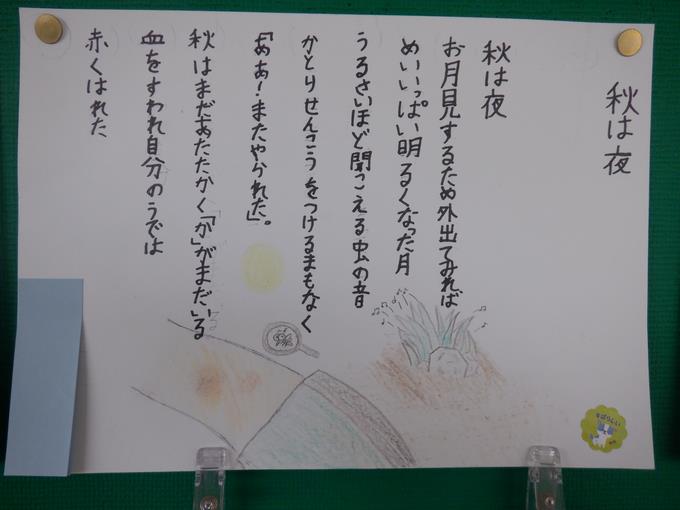 秋は夜
秋は夜
お月見するため外出てみれば
めいいっぱい明るくなった月
うるさいほど聞こえる虫の音
かとりせんこうをつけるまもなく
「ああ!またやられた」。
秋はまだあたたかく「か」がまだいる
血をすわれ自分のうでは
赤くはれた
すばらしい